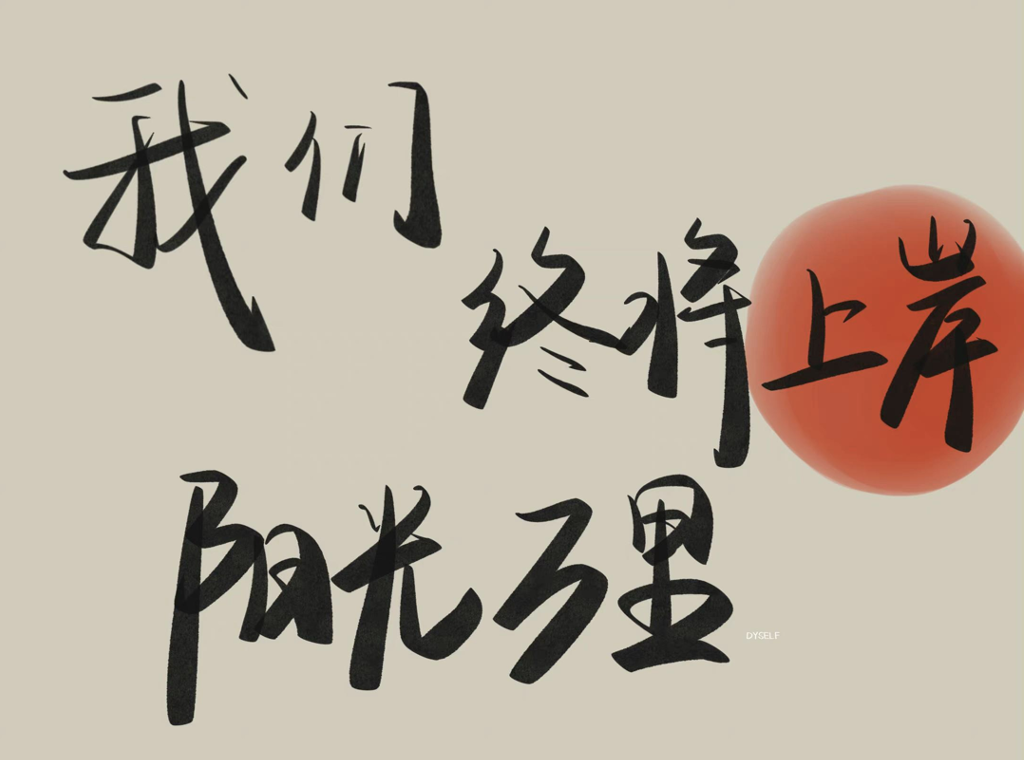 我们
终将上岸
阳光万里
DYSELF